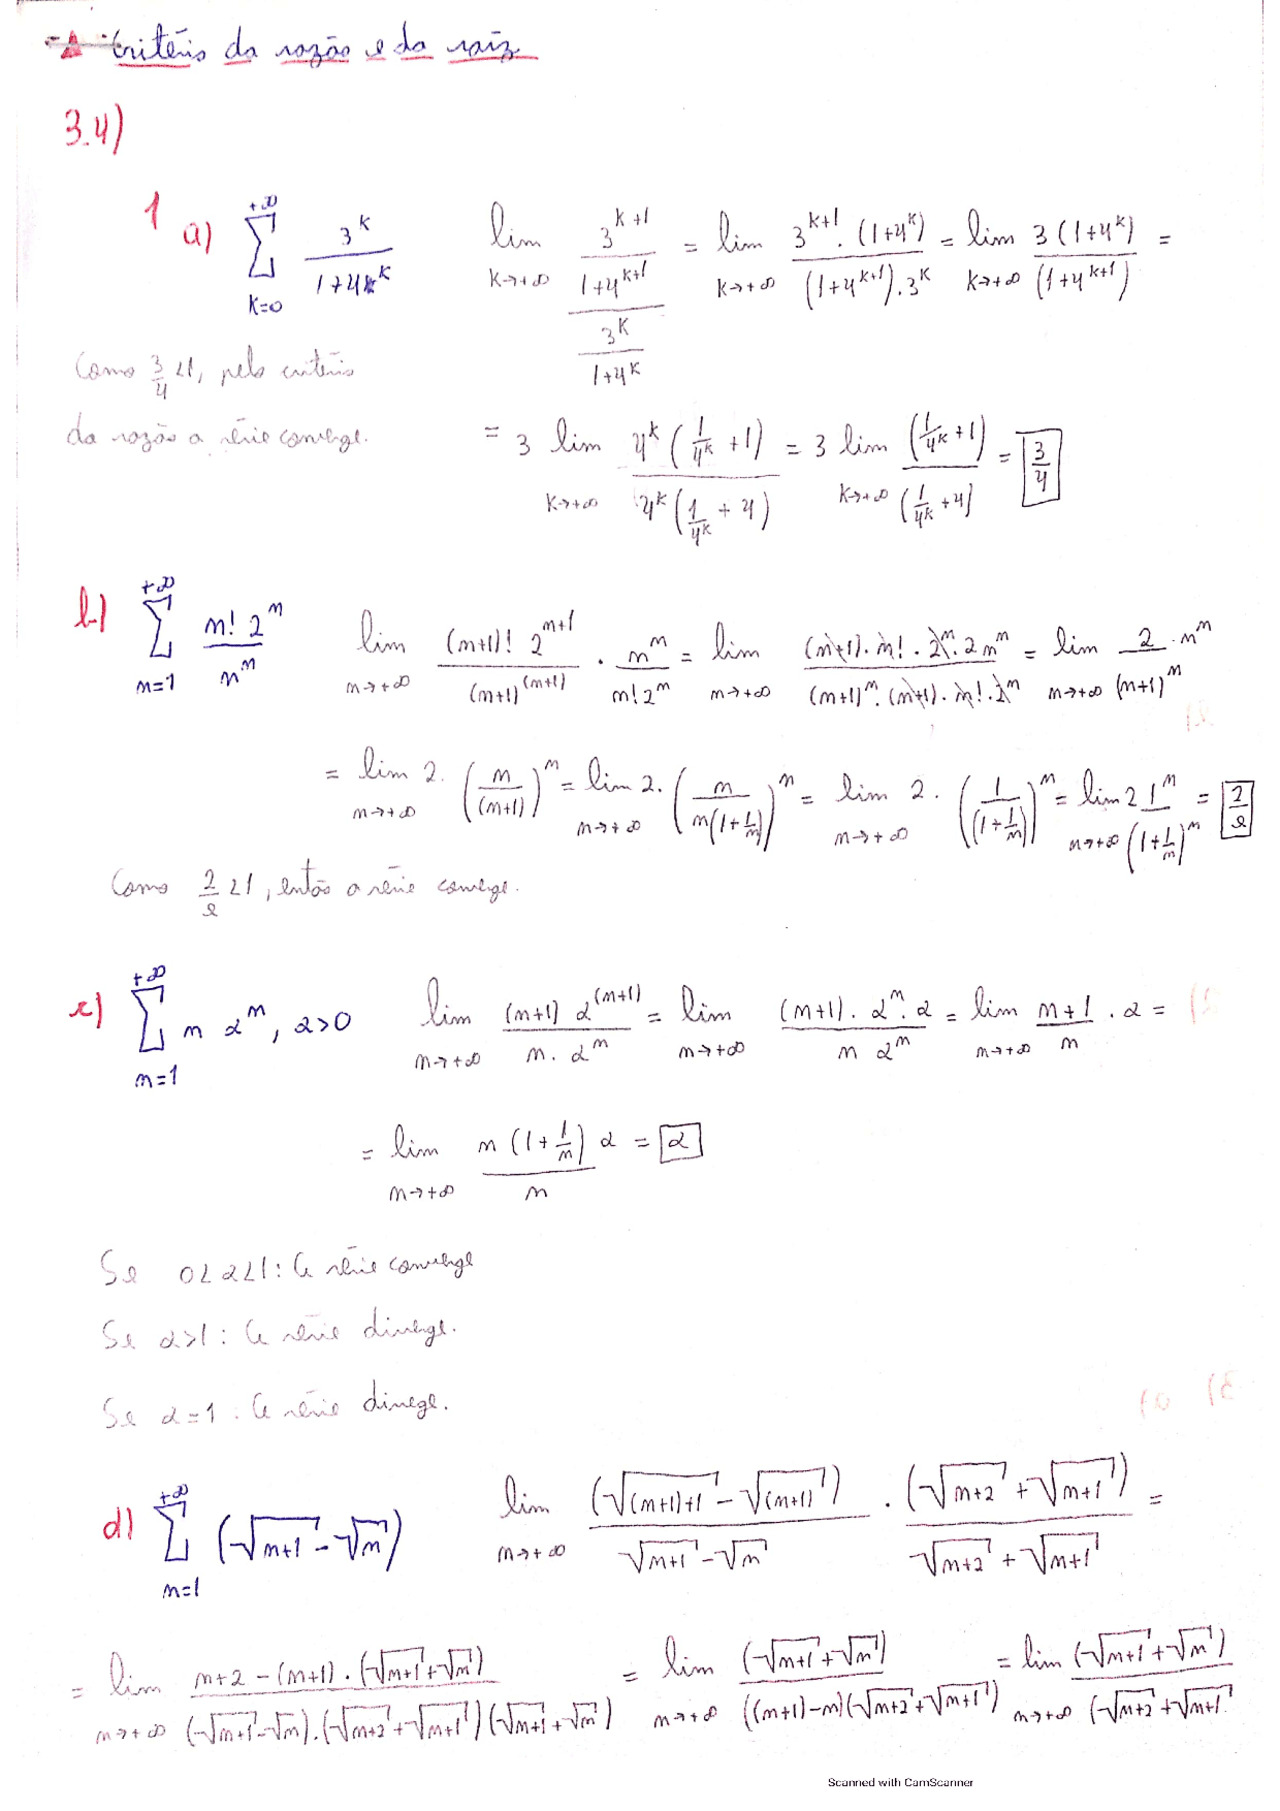 Critério da razão e da raiz
3.4)
1 a) \sum_{k=0}^{+\infty} \frac{3^k}{1+4^k} \lim_{k\to+\infty} \frac{\frac{3^{k+1}}{1+4^{k+1}}}{\frac{3^k}{1+4^k}} = \lim_{k\to+\infty} \frac{3^{k+1} \cdot (1+4^k)}{(1+4^{k+1}) \cdot 3^k} = \lim_{k\to+\infty} \frac{3(1+4^k)}{(1+4^{k+1})} =
Como \frac{3}{4} < 1, pelo critério
da razão a série converge.
= 3 \lim_{k\to+\infty} \frac{4^k(\frac{1}{4^k}+1)}{4^k(\frac{1}{4^k}+4)} = 3 \lim_{k\to+\infty} \frac{(\frac{1}{4^k}+1)}{(\frac{1}{4^k}+4)} = \frac{3}{4}
b) \sum_{n=1}^{+\infty} \frac{n! 2^n}{n^n} \lim_{n\to+\infty} \frac{(n+1)! 2^{n+1}}{(n+1)^{(n+1)}} \cdot \frac{n^n}{n! 2^n} = \lim_{n\to+\infty} \frac{(n+1) \cdot n! \cdot 2^n \cdot 2 n^n}{(n+1)^n \cdot (n+1) \cdot n! \cdot 2^n} = \lim_{n\to+\infty} \frac{2 \cdot n^n}{(n+1)^n}
= \lim_{n\to+\infty} 2 \cdot (\frac{n}{(n+1)})^n = \lim_{n\to+\infty} 2 \cdot (\frac{n}{n(1+\frac{1}{n})})^n = \lim_{n\to+\infty} 2 \cdot (\frac{1}{(1+\frac{1}{n})})^n = \lim_{n\to+\infty} 2 \frac{1^n}{(1+\frac{1}{n})^n} = \frac{2}{e}
Como \frac{2}{e} < 1, então a série converge.
c) \sum_{n=1}^{+\infty} n α^n, α>0 \lim_{n\to+\infty} \frac{(n+1) α^{(n+1)}}{n \cdot α^n} = \lim_{n\to+\infty} \frac{(n+1) \cdot α^n \cdot α}{n α^n} = \lim_{n\to+\infty} \frac{n+1}{n} \cdot α =
= \lim_{n\to+\infty} \frac{n(1+\frac{1}{n}) α}{n} = α
Se 0<α<1: a série converge
Se α>1: a série diverge.
Se α=1: a série diverge.
d) \sum_{n=1}^{+\infty} (\sqrt{n+1} - \sqrt{n}) \lim_{n\to+\infty} \frac{(\sqrt{(n+1)+1} - \sqrt{(n+1)})}{\sqrt{n+1} - \sqrt{n}} \cdot \frac{(\sqrt{n+2} + \sqrt{n+1})}{\sqrt{n+2} + \sqrt{n+1}} =
= \lim_{n\to+\infty} \frac{n+2-(n+1) \cdot (\sqrt{n+1}+\sqrt{n})}{(\sqrt{n+1}-\sqrt{n}) \cdot (\sqrt{n+2}+\sqrt{n+1})(\sqrt{n+1}+\sqrt{n})} = \lim_{n\to+\infty} \frac{(\sqrt{n+1}+\sqrt{n})}{((n+1)-n)(\sqrt{n+2}+\sqrt{n+1})} = \lim_{n\to+\infty} \frac{(\sqrt{n+1}+\sqrt{n})}{(\sqrt{n+2}+\sqrt{n+1}}
Scanned with CamScanner